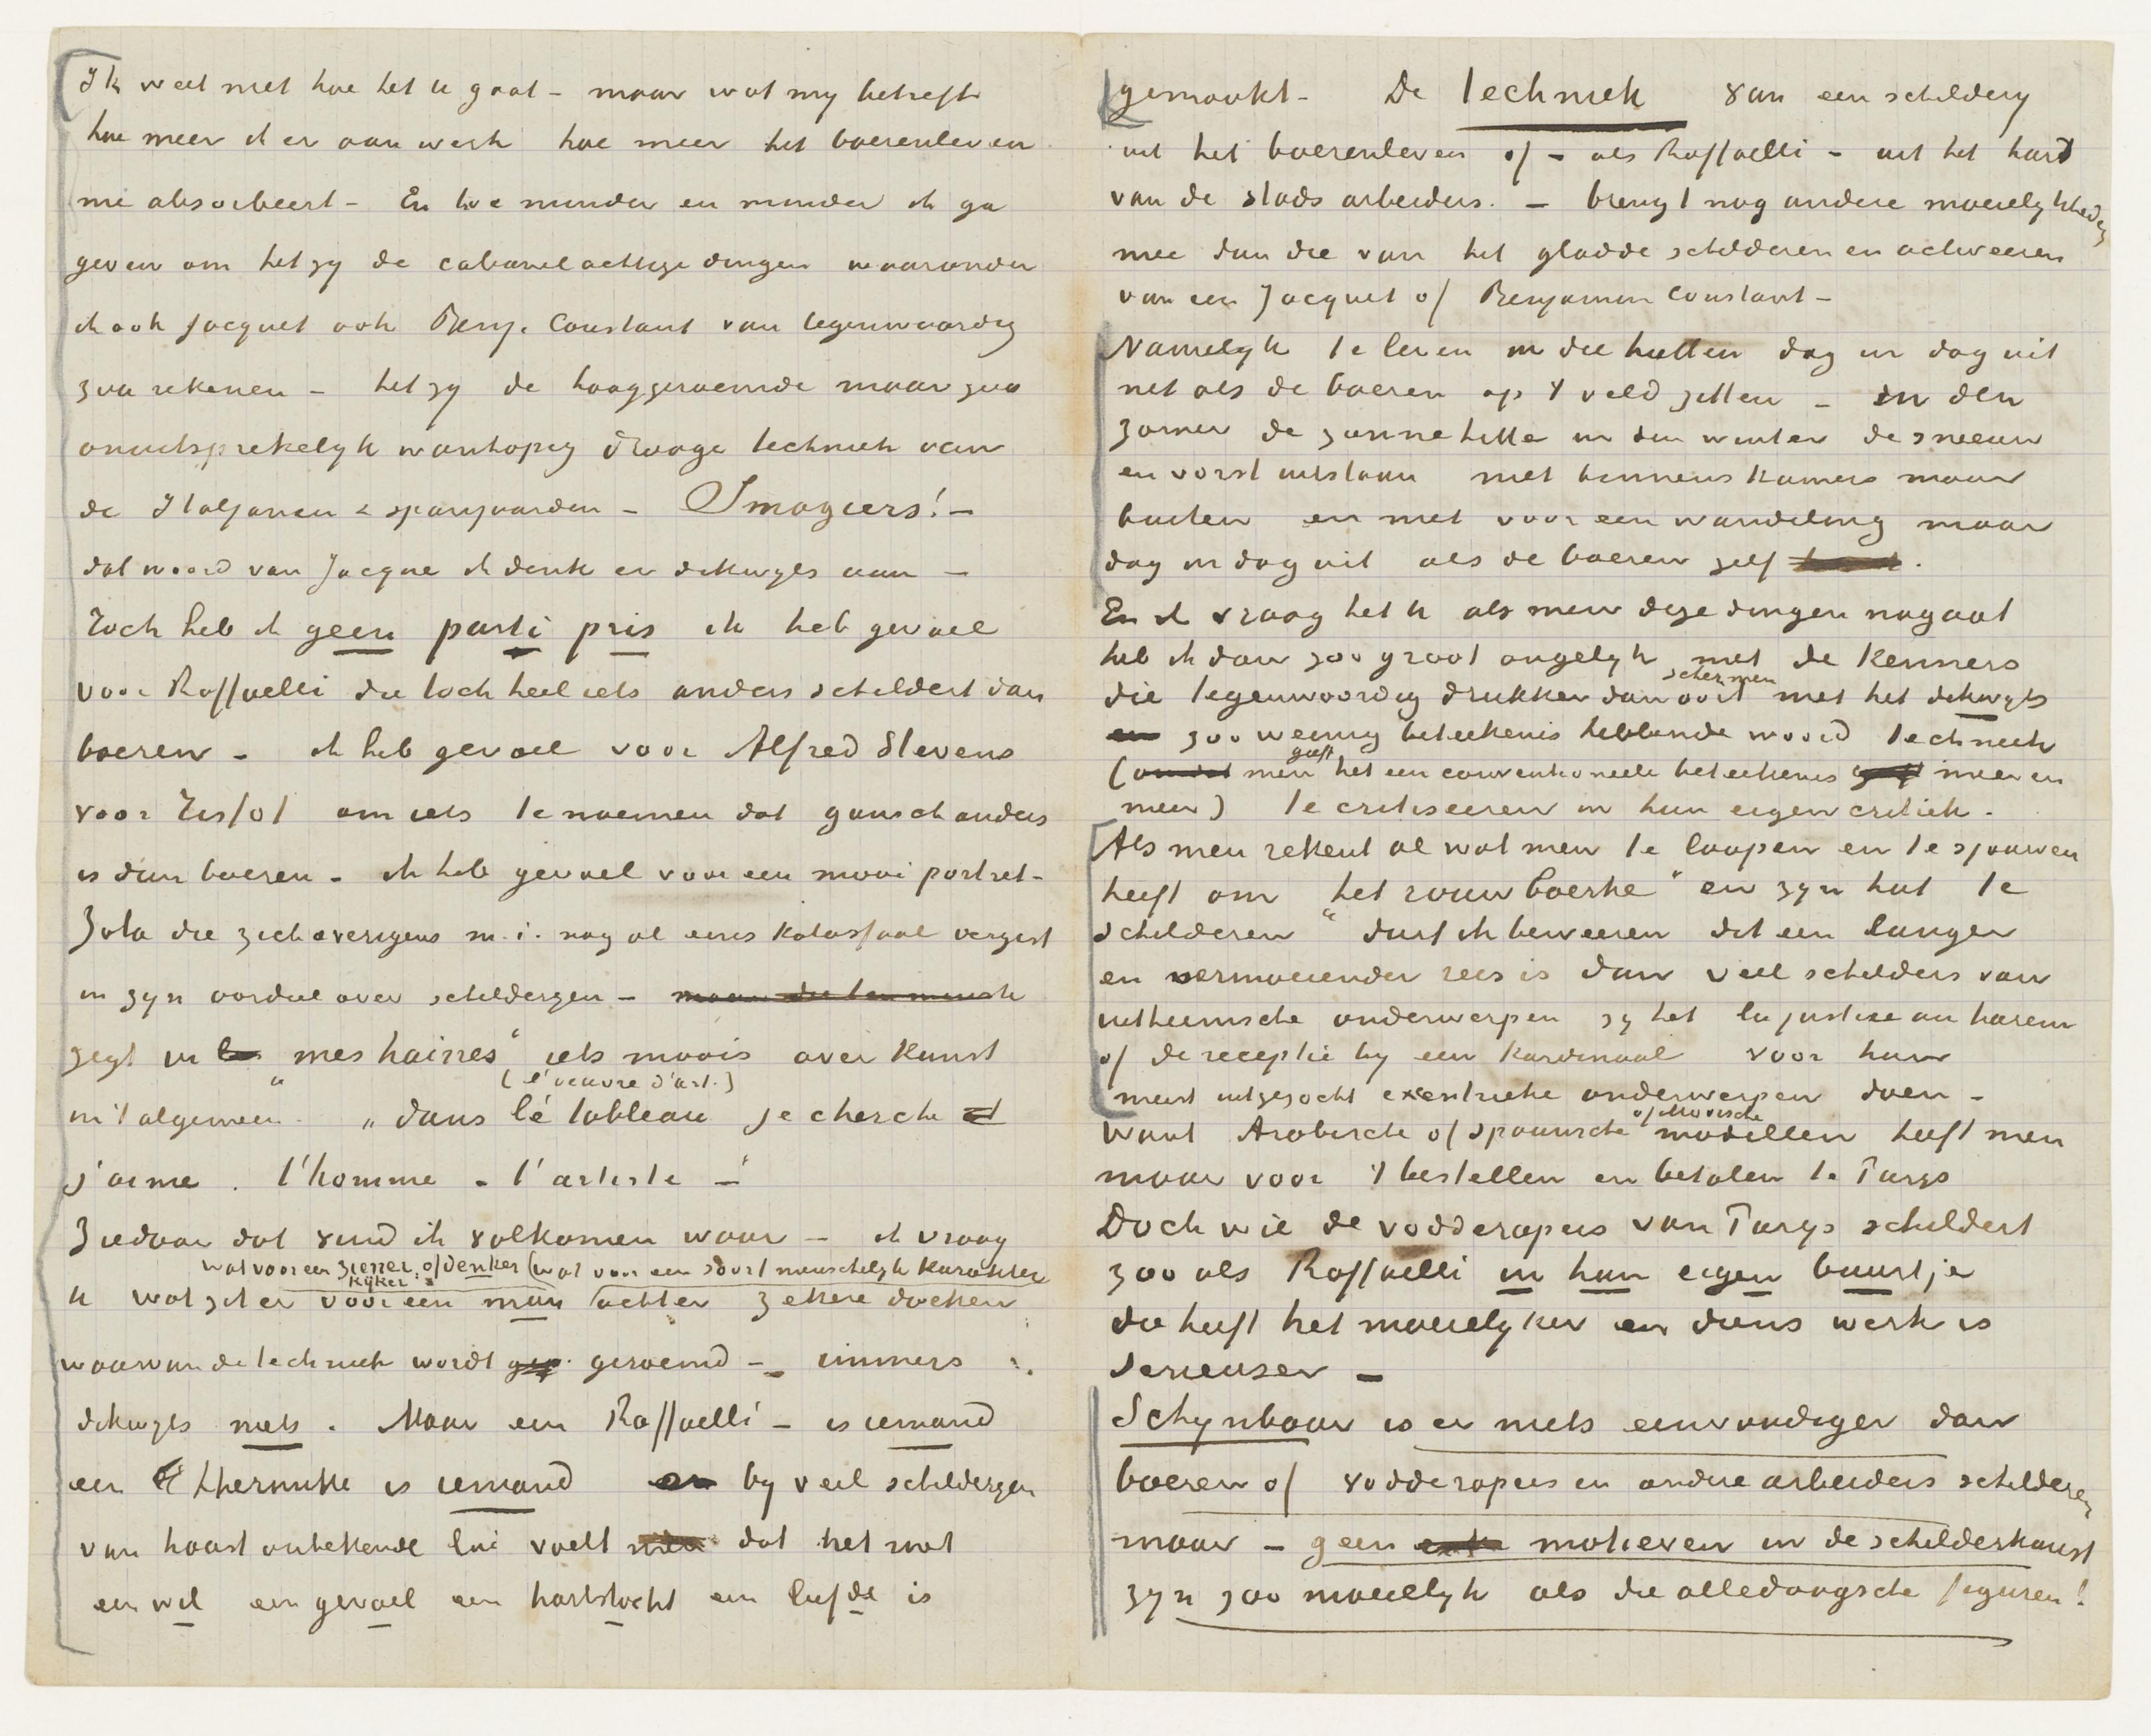 Ik weet niet hoe het U gaat – maar wat my betreft
hoe meer ik er aan werk hoe meer het boerenleven
me absorbeert – En hoe minder en minder ik ga
geven om hetzy de cabanelachtige dingen waaronder
ik ook Jacquet ook Benj. Constant van tegenwoordig
zou rekenen – hetzy de hooggeroemde maar zoo
onuitsprekelyk wanhopig drooge techniek van
de Italjanen & spanjaarden – Imagiers! –
dat woord van Jacque ik denk er dikwyls aan –
Toch heb ik geen parti pris ik heb gevoel
voor Raffaelli die toch heel iets anders schildert dan
boeren – ik heb gevoel voor Alfred Stevens
voor Tissot om iets te noemen dat gansch anders
is dan boeren – ik heb gevoel voor een mooi portret –
Zola die zich overigens m.i. nog al eens kolossaal vergist
in zyn oordeel over schilderyen – maar die ten minste
zegt in les "mes haines" iets moois over kunst
in 't algemeen. „dans le tableau (l'oeuvre d'art.) je cherche et
j'aime . l'homme – l'artiste –"
Ziedaar dat vind ik volkomen waar – ik vraag
wat voor een ziener, of denker (wat voor een soort menschelyk karakter
kyker
U wat zit er voor een man achter zekere doeken
waarvan de techniek wordt geroemd – immers
dikwyls niets . Maar een Raffaelli – is iemand
een Lhermitte is iemand en by veel schilderyen
van haast onbekende lui voelt men dat het met
een wil een gevoel een hartstocht een liefde is
gemaakt – De techniek van een schildery
uit het boerenleven of – als Raffaelli – uit het hart
van de stads arbeiders. – brengt nog andere moeielykheden
mee dan die van het gladde schilderen en actiweeren
van een Jacquet of Benjamin Constant –
Namelyk te leven in die hutten dag in dag uit
net als de boeren op 't veld zitten – in den
zomer de zonnehitte in den winter de sneeuw
en vorst uitstaan niet binnenskamers maar
buiten en niet voor een wandeling maar
dag in dag uit als de boeren zelf .
En ik vraag het U als men deze dingen nagaat
heb ik dan zoo groot ongelyk met de Kenners
die tegenwoordig drukker dan ooit schermen met het dikwyls
en zoo weinig beteekenis hebbende woord techniek
(omdat men geeft het een conventioneele beteekenis geeft meer en
meer) te critiseeren in hun eigen critiek .
Als men rekent al wat men te loopen en te sjouwen
heeft om "het rouwboerke" en zyn hut te
schilderen durf ik beweeren dit een langer
en vermoeiender reis is dan veel schilders van
uitheemsche onderwerpen zy het la justice au harem
of de receptie by een Kardinaal voor hun
meest uitgezocht exentrieke onderwerpen doen –
Want Arabische of spaansche of Moorsche modellen heeft men
maar voor 't bestellen en betalen te Parys
Doch wie de vodderapers van Parys schildert
zoo als Raffaelli in hun eigen buurtje
die heeft het moeielyker en diens werk is
serieuser –
Schynbaar is er niets eenvoudiger dan
boeren of vodderapers en andere arbeiders schilderen
maar – geen motieven in de schilderkunst
zyn zoo moeielyk als die alledaagsche figuren!